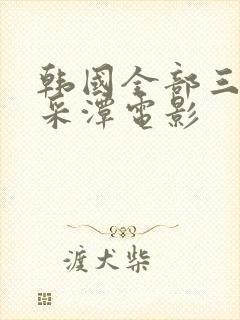 韩國全部三
采潭电影
渡犬柴